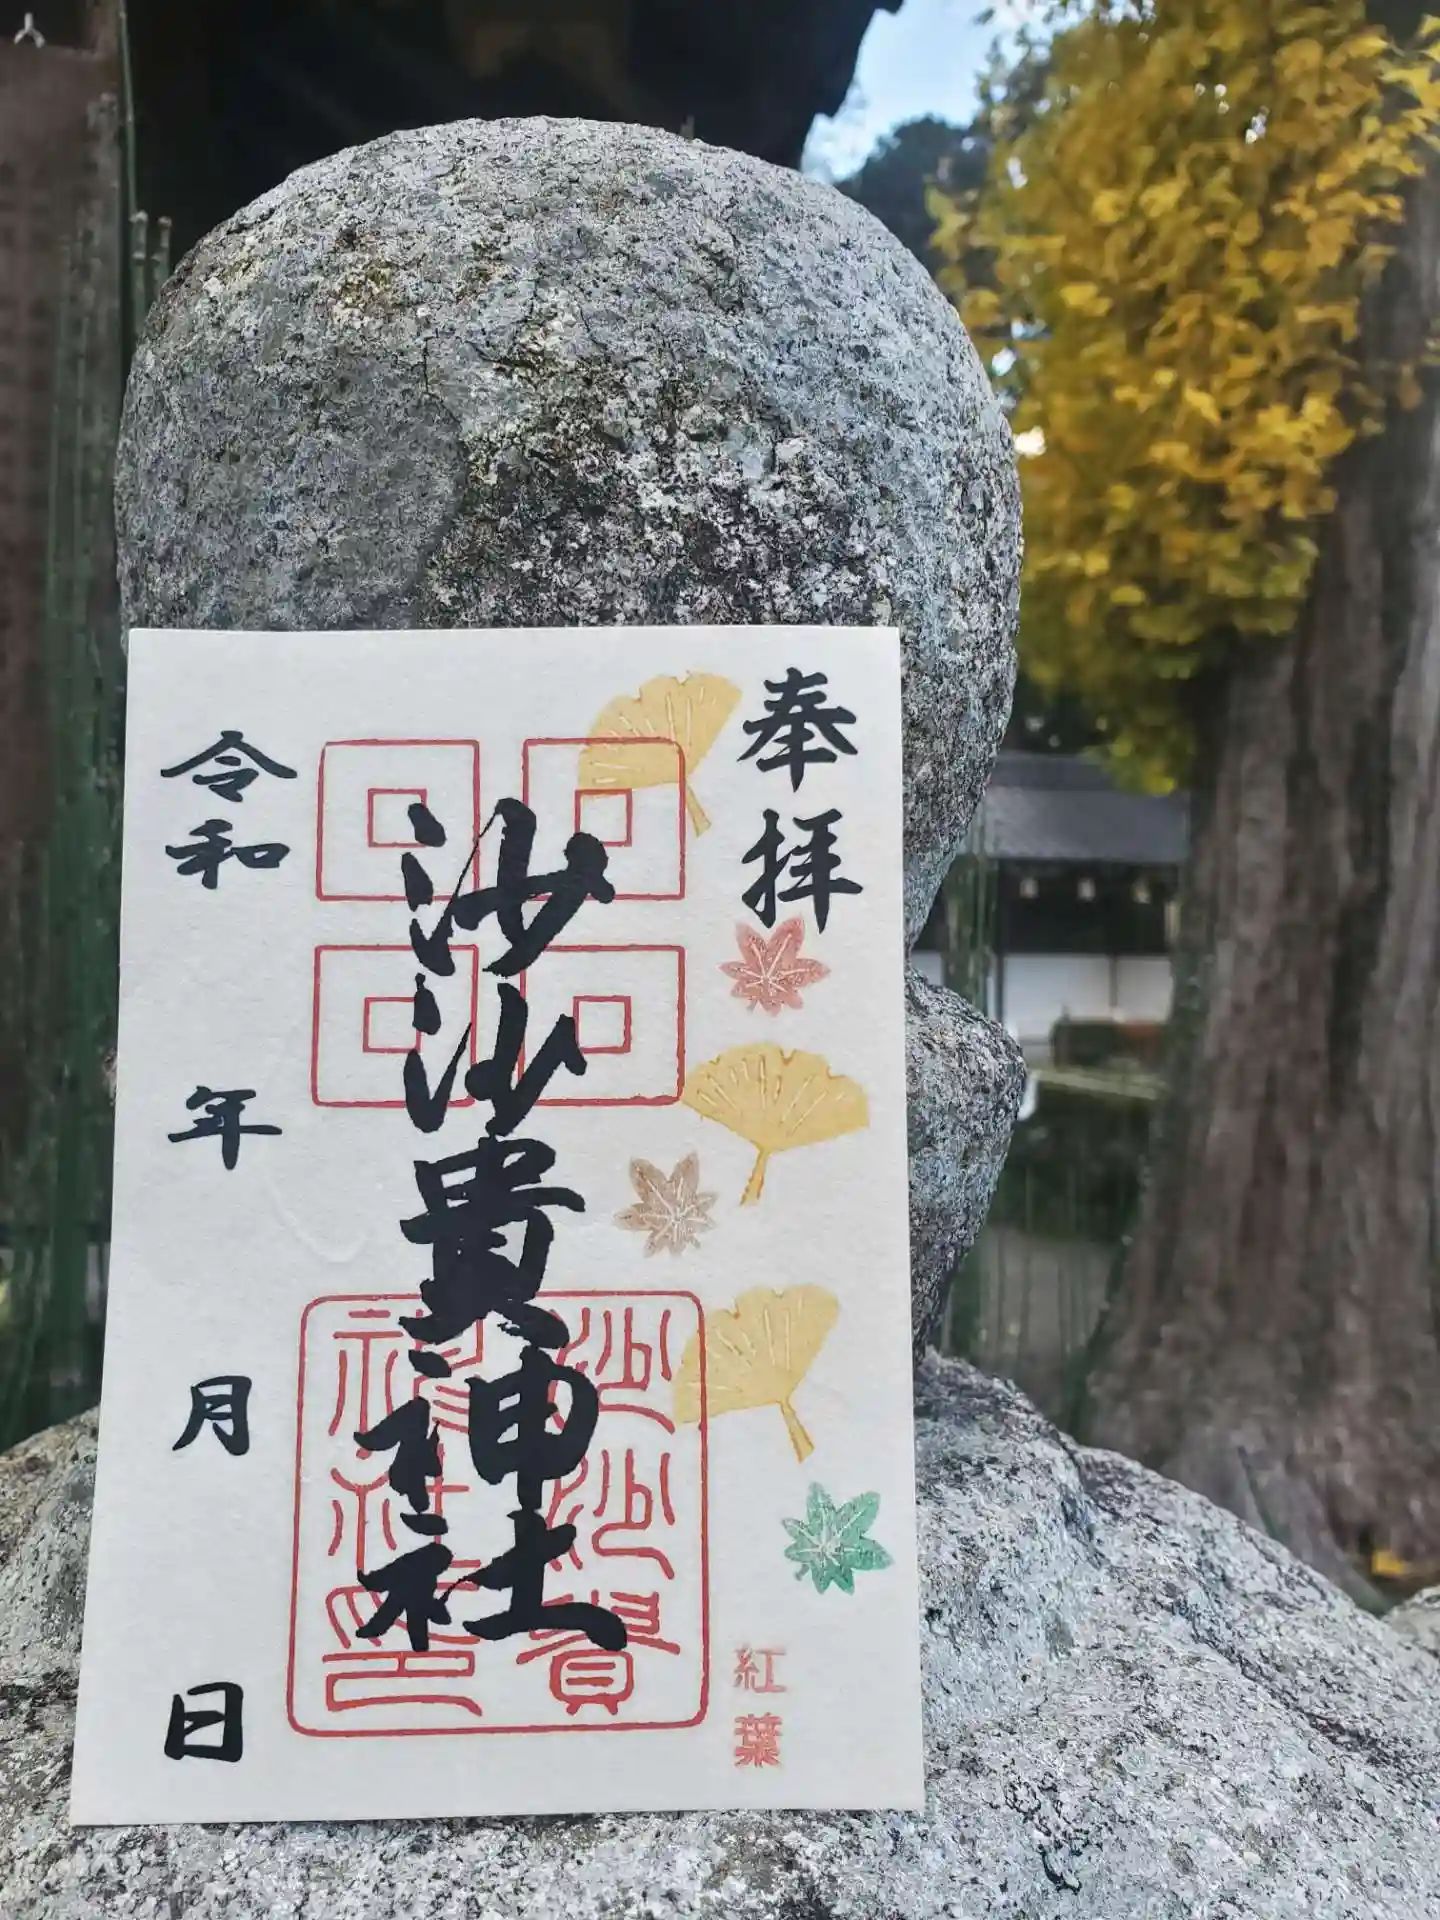 奉拝
紅葉
沙沙貴神社
沙沙貴
神社印
令和 年 月 日